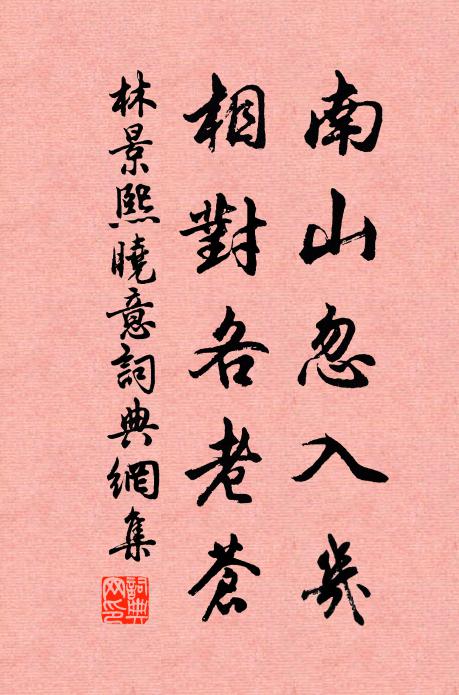 南山忽入几
相對各老蒼
林景熙曉意詞典網集
詞典網印